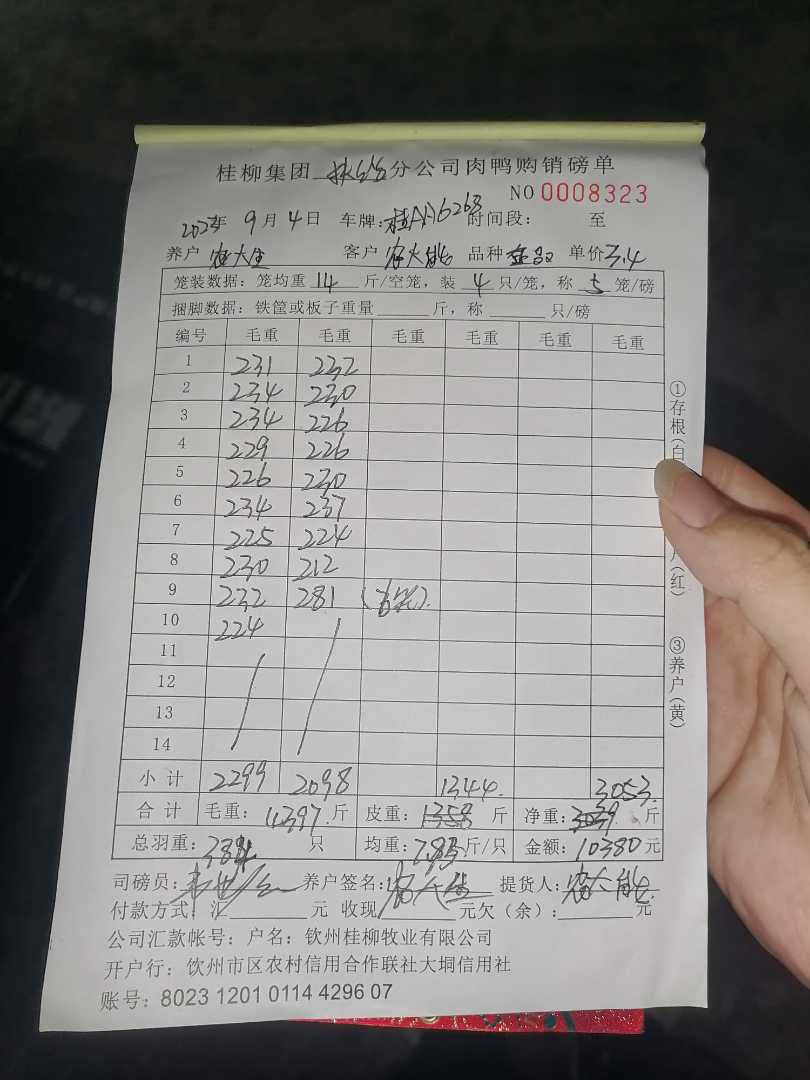 桂柳集团 分公司肉鸭购销磅单
NO 0008323
2023年 9月 4日 车牌：桂AA6263 时间段： 至
养户 客户 品种 单价 3.4
笼装数据：笼均重 14 斤/空笼，装 4 只/笼，称 5 笼/磅
捆脚数据：铁筐或板子重量 斤，称 只/磅
编号 毛重 毛重 毛重 毛重 毛重 毛重
1 231 232
2 234 230
3 234 226
4 229 226
5 226 230
6 234 237
7 225 224
8 230 212
9 232 281
10 224
11
12
13
14
小计 2299 2098 1344 3053
合计 毛重：4397 斤 皮重：1358 斤 净重：3039 斤
总羽重：384 只 均重： 斤/只 金额：10380 元
司磅员： 养户签名： 提货人：
付款方式：汇 元 收现 元欠（余）： 元
公司汇款帐号：户名：钦州桂柳牧业有限公司
开户行：饮州市区农村信用合作联社大垌信用社
账号：8023 1201 0114 4296 07
①存根（白
（红）
③养户（黄）